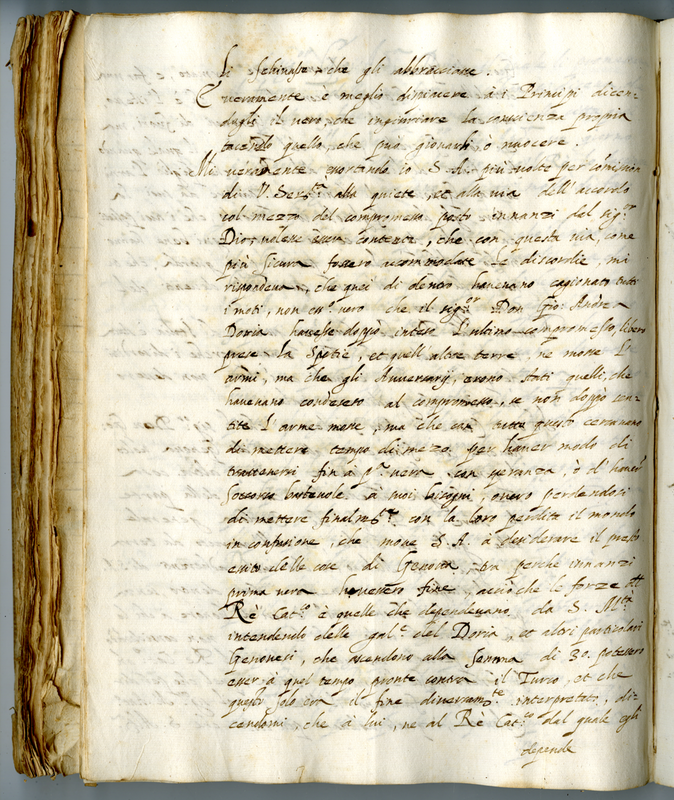 li schivasse che gli abbracciasse.
E veramente è meglio dispiacere à i Principi dicen-
dogli il vero, che ingannare la conscienza propria
tacendo quello, che può giovarli, ò nuocere.
Mà veramente esortando io S. A. più volte per comission
di V. Ser.tà alla quiete, et alla via dell'accordo
col mezzo del compromesso posto innanzi dal sig.or
Dio, volesse esser contenta, che con questa via, come
più sicura fossero accommodate le discordie, mi
rispondeva, che quei di dentro havevano cagionato tutti
i moti, non ess.r vero che il sig.or Don Gio: Andrea
Doria havesse doppò inteso l'ultimo compromesso, libero
prese la Spetie, et quell'altre terre, ne mosse l'
armi, ma che gli Avversarij, erano stati quelli, che
havevano condesceso al compromesso, se non doppo sen-
tite l'arme mosse, ma che con tutto questo cercavano
di mettere tempo di mezo per haver modo di
trattenersi fin à p.a vera con speranza, ò d'haver
soccorso bastevole à suoi bisogni, overo perdendosi
di mettere finalm.te con la loro perdita il mondo
in confusione, che move S. A. à desiderare il presto
esito delle cose di Genova, era perche innanzi
prima vera havessero fine, acciò che le forze del
Rè Cat.co è quelle che dependevano da S. M.tà
intendendo delle gal.e del Doria, et altri particolari
Genovesi, che ascendono alla somma di 30. potessero
esser à quel tempo pronte contra il Turco, et che
questo solo era il fine diversam.te interpretato, di-
cendomi, che à lui, ne al Rè Cat.co dal quale egli
depende